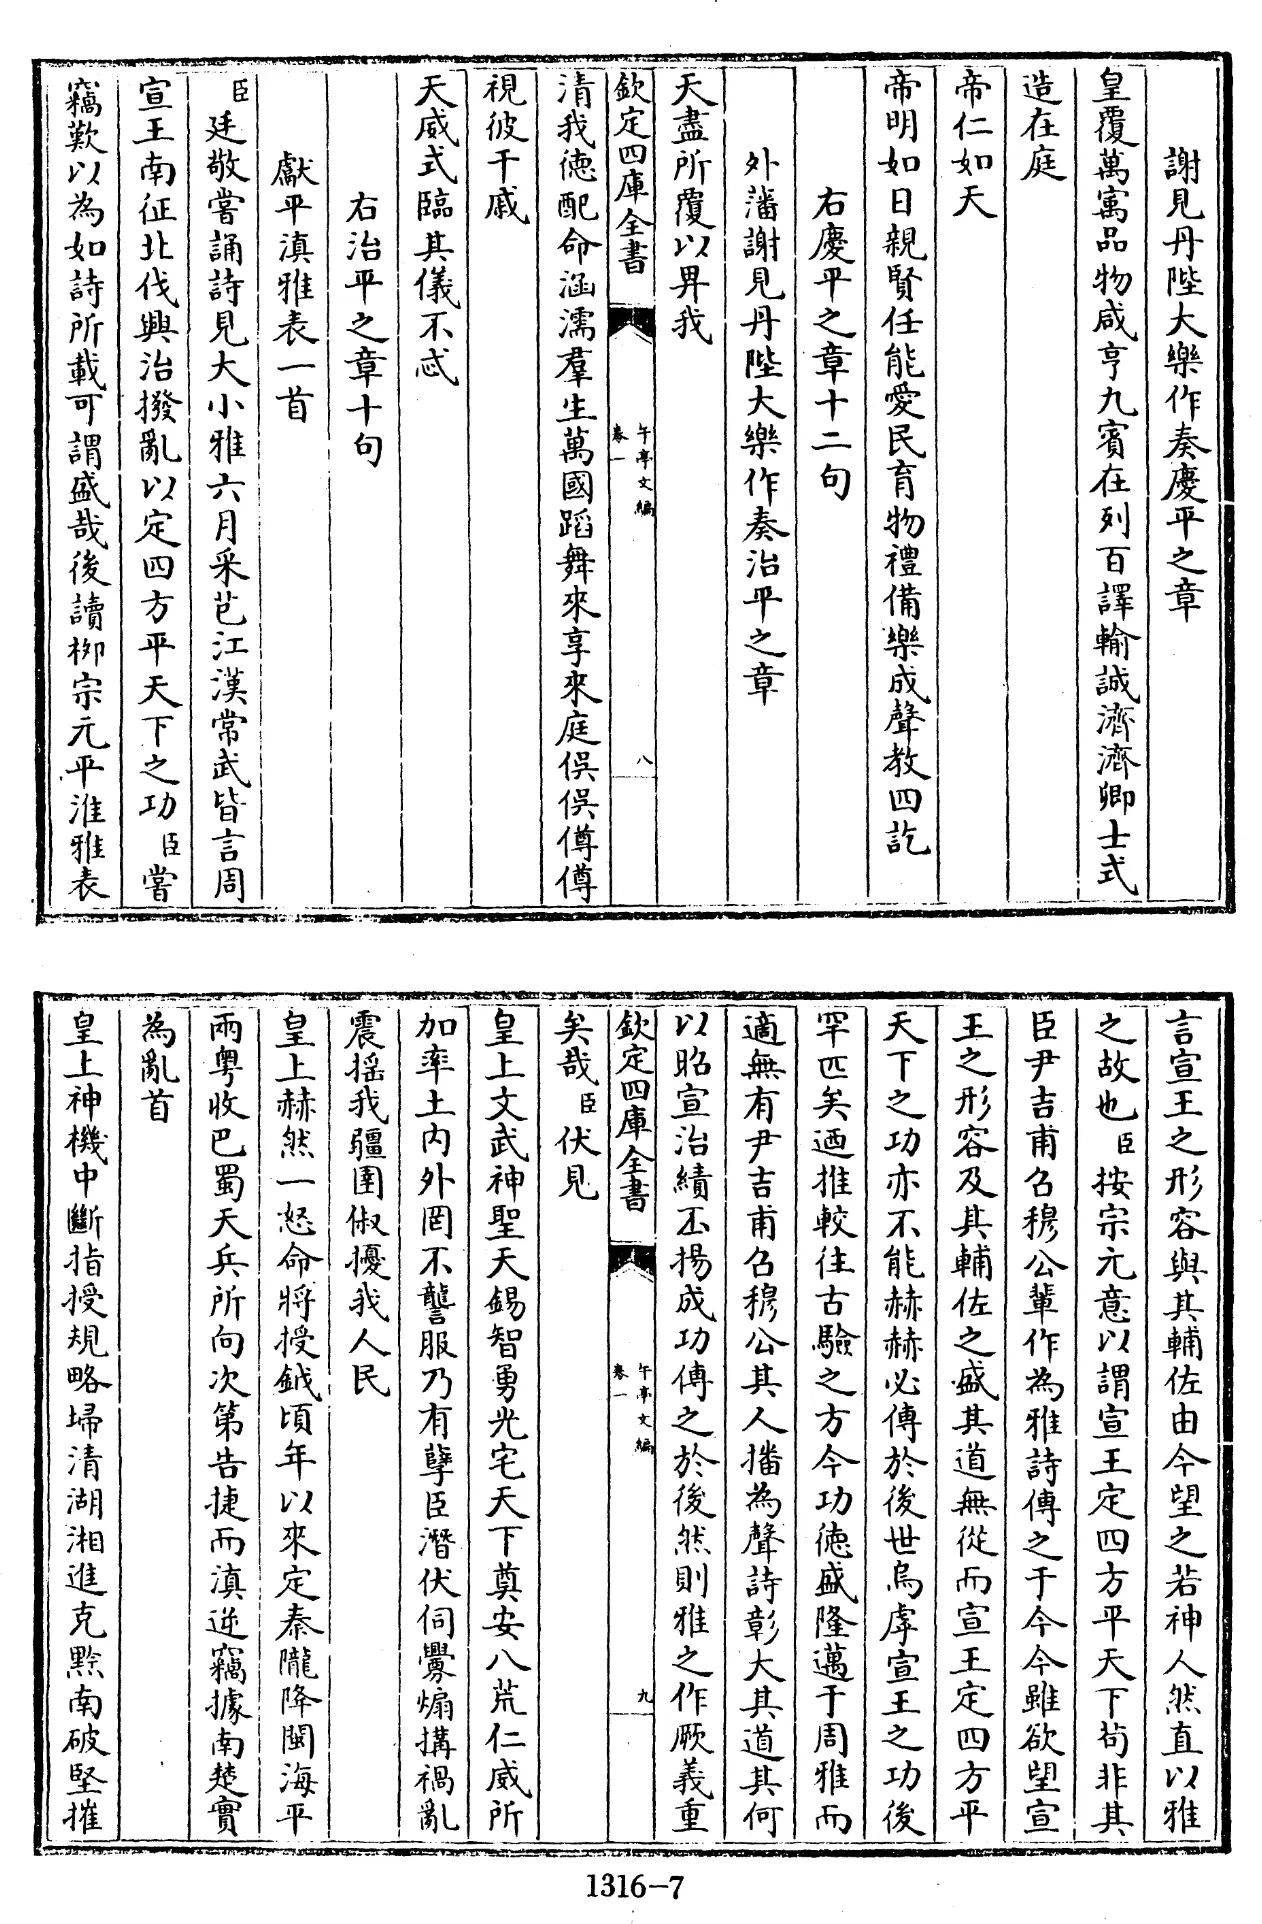 謝見丹陛大樂作奏慶平之章
皇覆萬㝢品物咸亨九賓在列百譯輸誠濟濟卿士式
造在庭
帝仁如天
帝明如日親賢任能愛民育物禮備樂成聲教四訖
右慶平之章十二句
外藩謝見丹陛大樂作奏治平之章
天盡所覆以畀我
欽定四庫全書 午亭文編 卷一 八
清我德配命涵濡羣生萬國蹈舞來享來庭俁俁僔僔
視彼干戚
天威式臨其儀不忒
右治平之章十句
獻平滇雅表一首
臣廷敬嘗誦詩見大小雅六月采芑江漢常武皆言周
宣王南征北伐興治撥亂以定四方平天下之功臣嘗
竊歎以為如詩所載可謂盛哉後讀柳宗元平淮雅表
言宣王之形容與其輔佐由今望之若神人然直以雅
之故也臣按宗元意以謂宣王定四方平天下茍非其
臣尹吉甫召穆公輩作為雅詩傳之于今今雖欲望宣
王之形容及其輔佐之盛其道無從而宣王定四方平
天下之功亦不能赫赫必傳於後世烏虖宣王之功後
罕匹矣迺推較往古驗之方今功德盛隆邁于周雅而
適無有尹吉甫召穆公其人播為聲詩彰大其道其何
以昭宣治績丕揚成功傳之於後然則雅之作厥義重
欽定四庫全書 午亭文編 卷一 九
矣哉臣伏見
皇上文武神聖天錫智勇光宅天下奠安八荒仁威所
加率土内外罔不讋服乃有孽臣潛伏伺釁煽搆禍亂
震搖我疆圉俶擾我人民
皇上赫然一怒命將授鉞頃年以來定秦隴降閩海平
兩粤收巴蜀天兵所向次第告捷而滇逆竊據南楚實
為亂首
皇上神機中斷指授規略埽清湖湘進克黔南破堅摧
1316-7